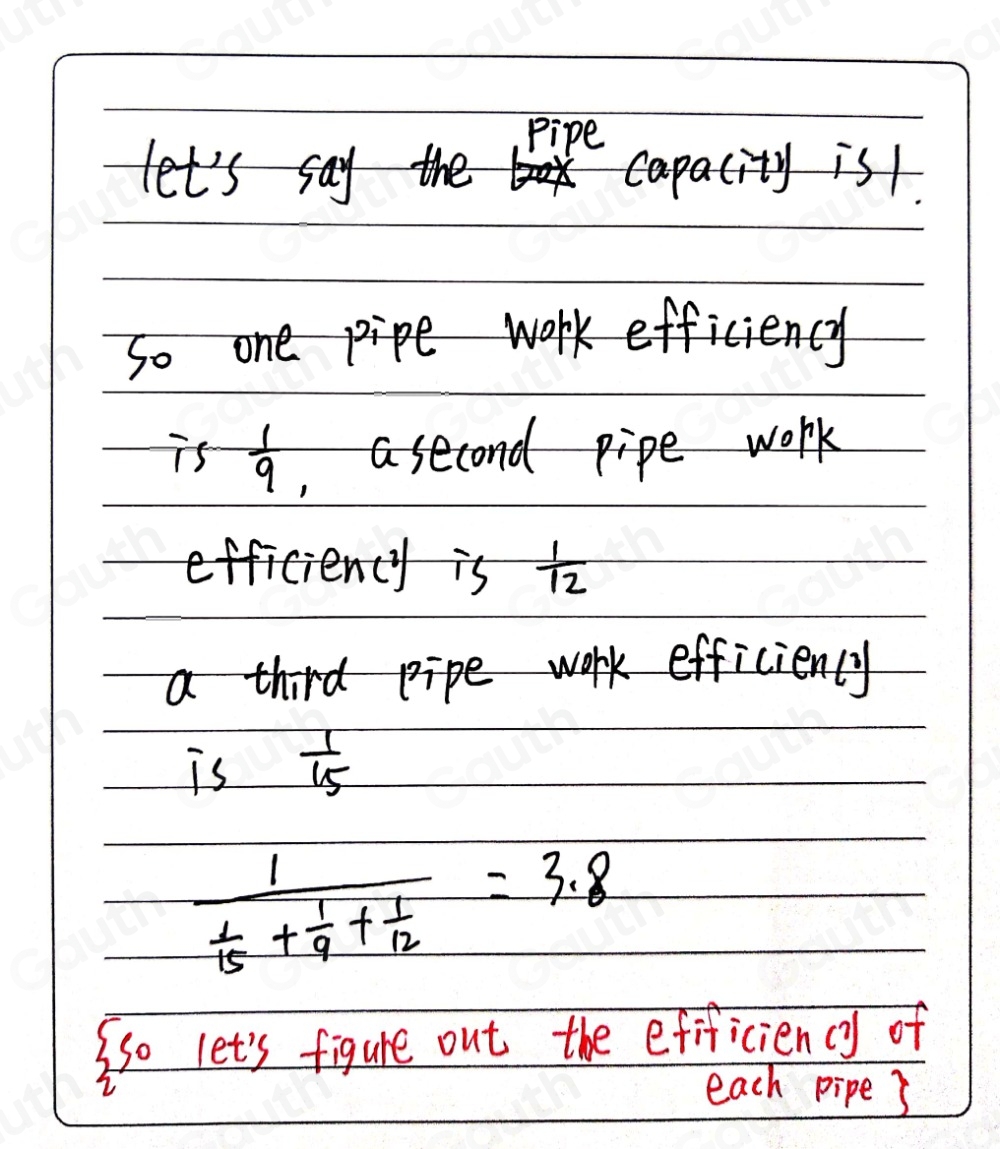 let's say the pipe capacity is 1.
so one pipe work efficiency
is 1/9, a second pipe work
efficiency is 1/12
a third pipe work efficiency
is 1/15
1/(1/15 + 1/9 + 1/12) = 3.8
{so let's figure out the efificiency of
each pipe}